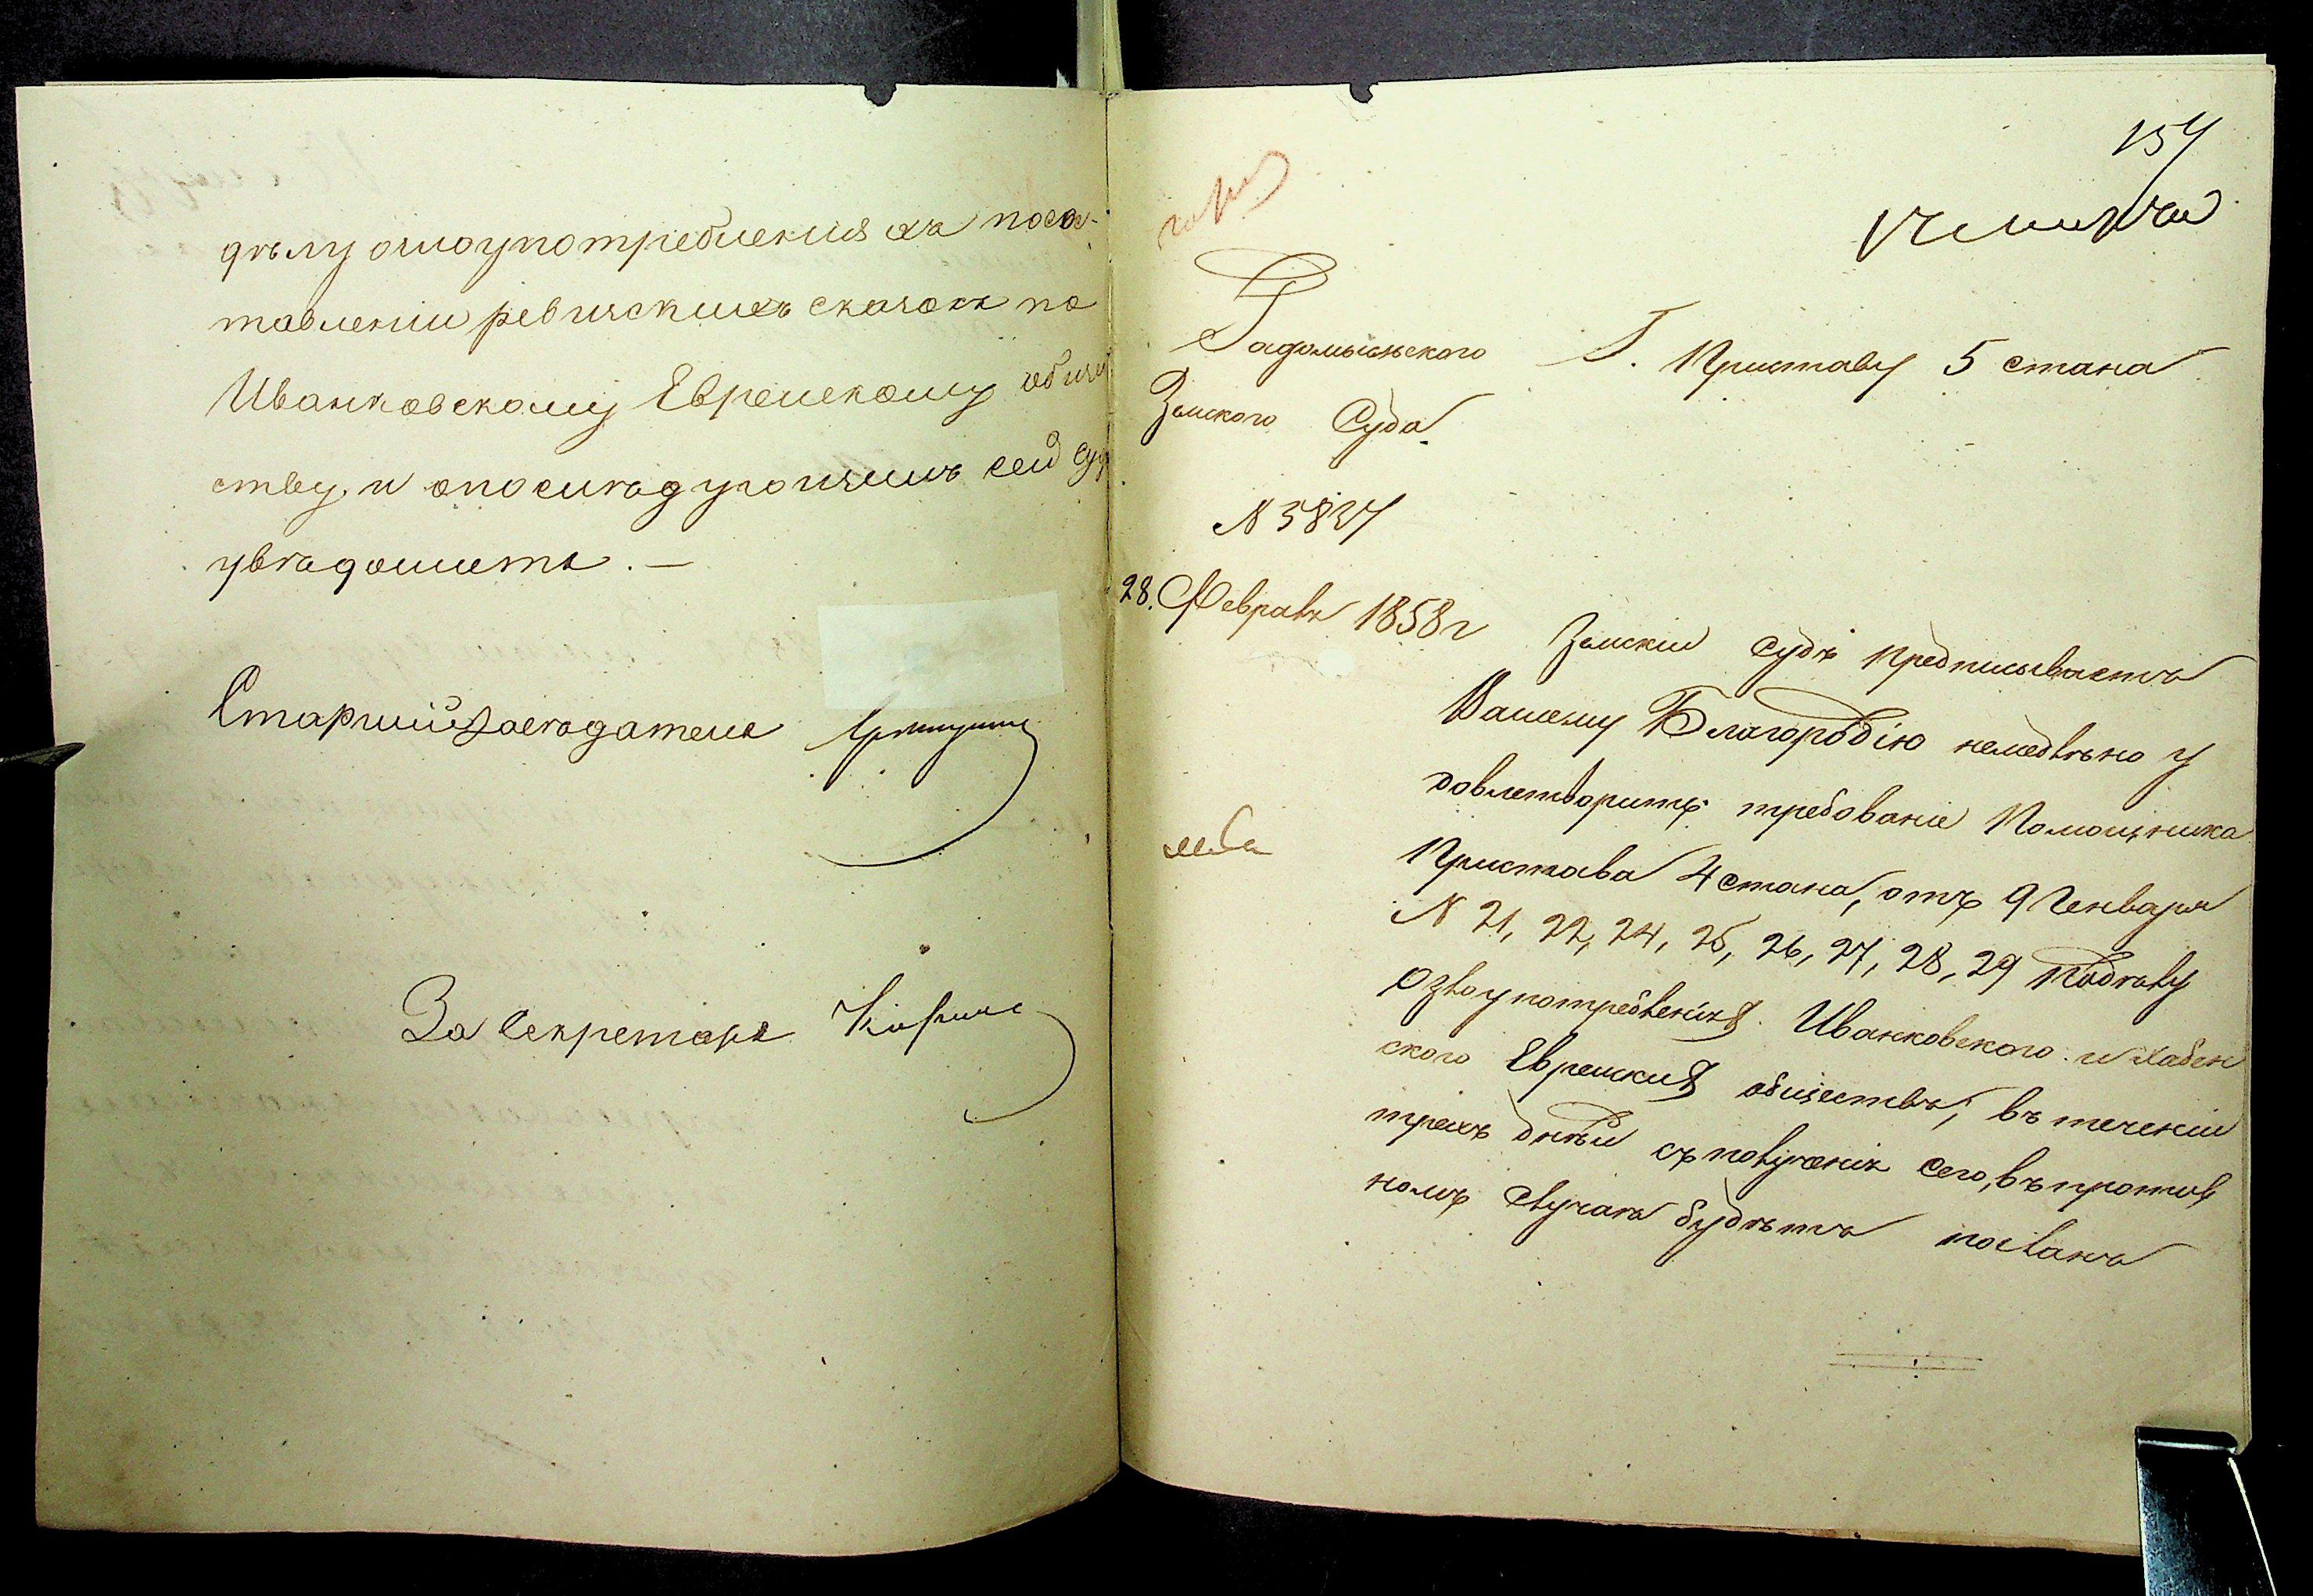 дѣлу о злоупотребленіяхъ по сос-
тавленіи ревизскихъ сказокъ по
Иванковскому Еврейскому общес
ству, и о послѣдующемъ сей Суд
увѣдомить. —
Старшій Засѣдатель
За Секретаря
157
Радомысльскаго
Земского Суда
N 5837
28. Февраля 1858 г
Г. Приставу 5 стана
Земскій Судъ предписываетъ
Вашему Благородію немедлѣно у
довлетворить требованіе Помощника
Пристава 4 стана, отъ 9 Генваря
N 21, 22, 24, 25, 26, 27, 28, 29 По дѣлу
О злоупотребленіях Иванковского и Хабен
ского Еврейских обществъ, въ теченіи
трехъ дней съ полученія сего, въ против
номъ случаѣ будетъ посланъ